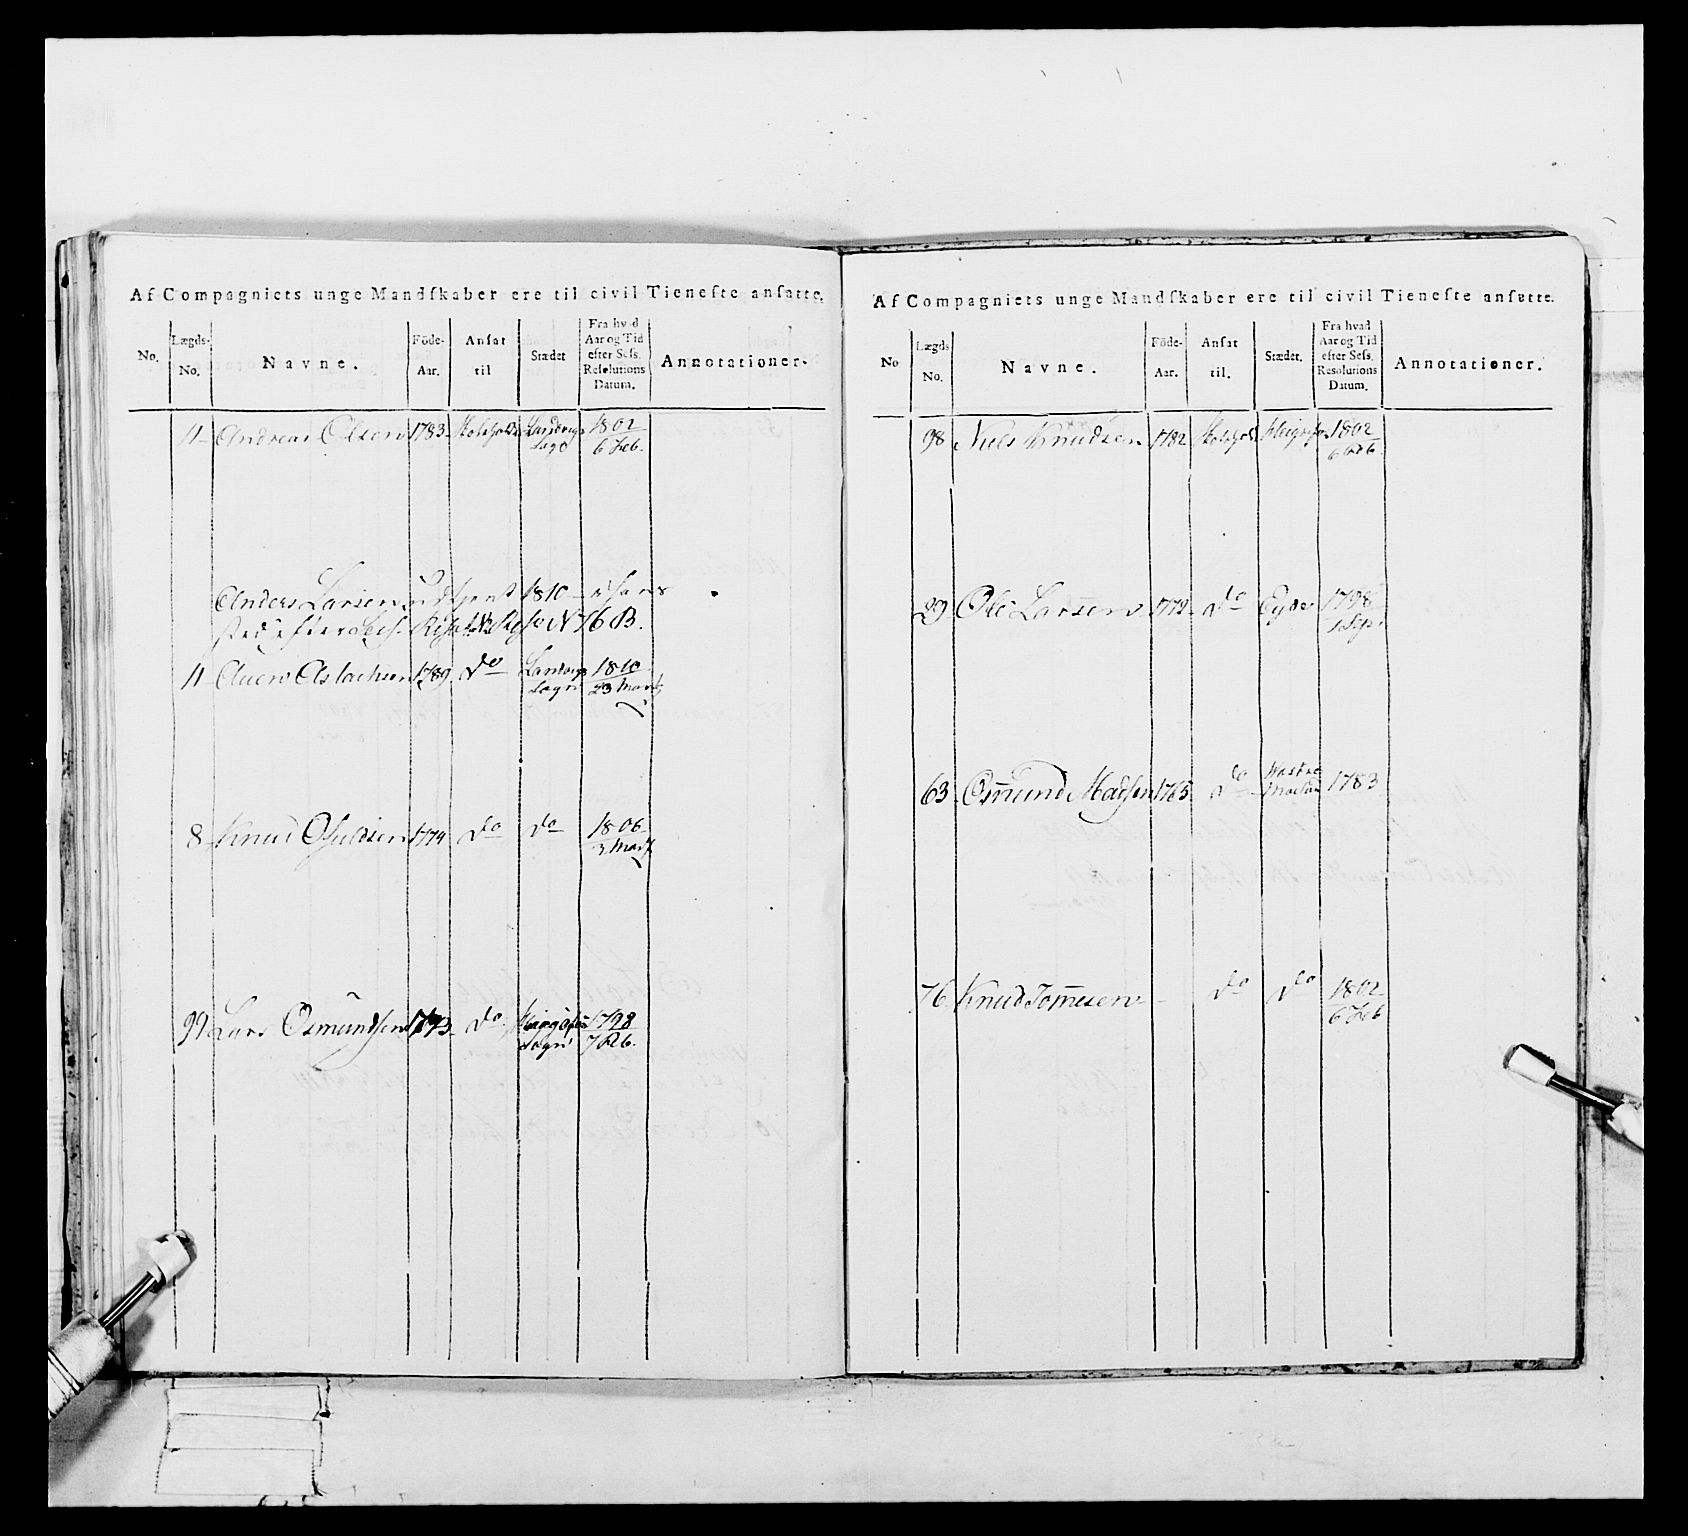 Af Compagniets unge Mandſkaber ere til civil Tieneſte anſatte.
No.
Lægds-
No.
Navne.
Föde-
Aar.
Anſat
til
Stædet
Fra hvad
Aar og Tid
efter Sefs.
Reſolutions
Datum.
Annotationer.
11 Andreas Olsen 1783 Skoleholder Landvigs 1802
Sogn 6 Feb.
Anders Larsen udtjent 1810
sted efter No 76 B.
11 Auen Aslachsen 1789 do Landvigs 1810
Sogn 23 Marti
8 Knud Osuldsen 1774 do do 1806
3 Marti
99 Lars Osmundsen 1773 do 1798
Sogn 7 Feb.
Af Compagniets unge Mandſkaber ere til civil Tieneſte anſatte.
No
Lægds
No.
Navne.
Föde-
Aar.
Anſat
til.
Stædet.
Fra hvad
Aar og Tid
efter Sefs.
Resolutions
Datum.
Annotationer.
98 Niels Knudsen 1782 Skoleh. 1802
6 Feb
29 Ole Larsen 1772 do Eyde 1798
1 Sept
63 Osmund Madsen 1765 do 1783
76 Knud Tommesen do do 1802
6 Feb